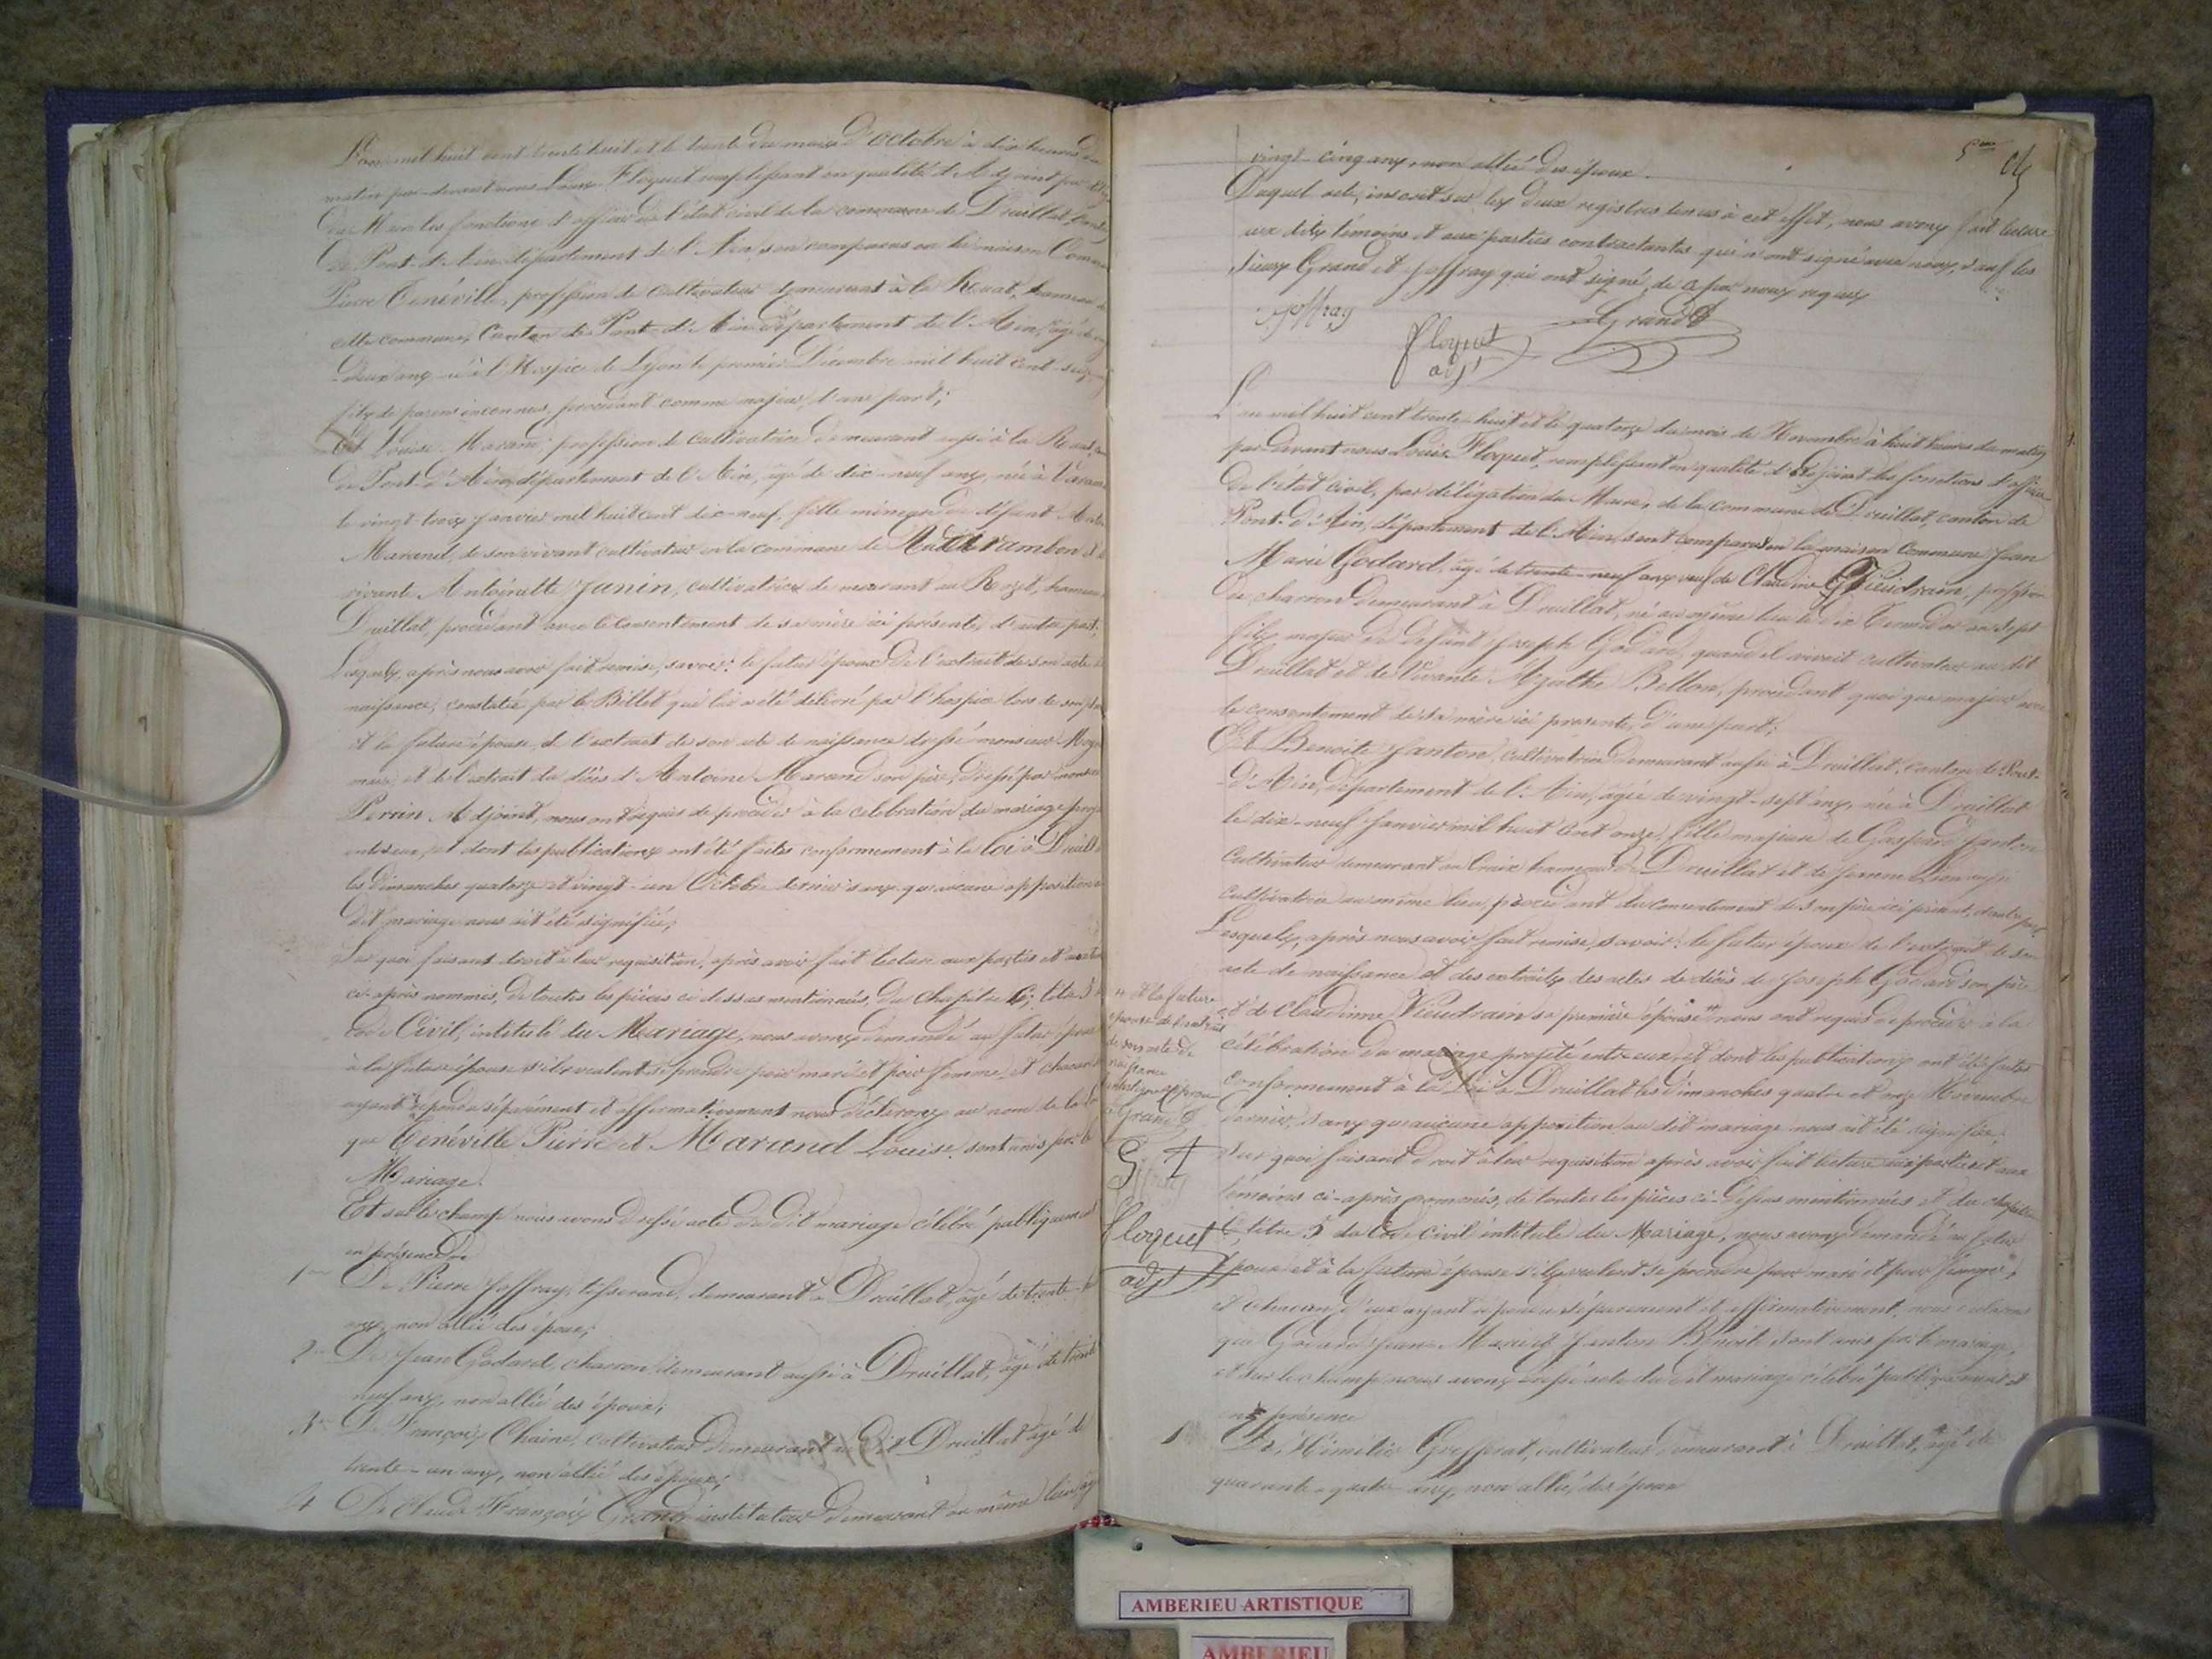 L'an mil huit cent trente huit et le trente du mois d'octobre à dix heures du
matin par-devant nous Louis Floquet remplissant en qualité d'Adjoint par
du Maire les fonctions d'officier de l'état civil de la commune de Druillat, canton
de Pont-d'Ain département de l'Ain, son comparus en la maison Commune
Pierre Tenéville, proffession de cultivateur demeurant à la Ruat, hameau de
cette commune, Canton de Pont-d'Ain département de l'Ain, âgé de
deux ans né à l'Hospice de Lyon le premier Décembre mil huit cent seize
fils de parens inconnus, procédant comme majeur, d'une part;
Et Louise Marand, profession de cultivatrice demeurant aussi à la Ruat,
de Pont-d'Ain, département de l'Ain, âgé de dix-neuf ans, née à
le vingt-trois Janvier mil huit cent dix-neuf, fille mineure du défunt
Marand, de son vivant cultivateur en la commune de
vivante Antoinette Janin, cultivatrice demeurant au Rozet, hameau
Druillat, procédant avec le consentement de sa mère ici présente, d'autre part,
Lesquels, après nous avoir fait remise, savoir: le futur époux de l'extrait de son acte
naissance, constatée par le Billet qui lui a été délivré par l'hospice lors de
et la future épouse, de l'extrait de son acte de naissance dressé monsieur
maire et de l'extrait du décès d'Antoine Marand son père, dressé par monsieur
Perrin Adjoint, nous ont requis de procéder à la célébration du mariage projeté
entre eux, et dont les publications ont été faites conformement à la loi à Druillat
les dimanches quatorze et vingt-un Octobre dernier sans qu'aucune opposition
dit mariage nous ait été signifiée;
Sur quoi faisant droit à leur requisition, après avoir fait lecture aux parties et
ci-après nommés, de toutes les pièces ci-dessus mentionnées, du chapitre 6, titre 5
code Civil, intitulé du Mariage, nous avons demandé au futur époux
à la future épouse s'ils veulent se prendre pour mari et pour femme, et chacun
ayant répondu séparément et affirmativement nous déclarons au nom de la loi
que Tenéville Pierre et Marand Louise, sont unis par le
Mariage.
Et sur le champ nous avons dressé acte du dit mariage célébré publiquement
en présence de
1° De Pierre Joffray, tisserand, demeurant à Druillat, âgé de trente
ans, non allié des époux;
2° De Jean Godard, charron, demeurant aussi à Druillat, âgé de trente
neuf ans, non allié des époux;
3° De François Chaine, cultivateur demeurant au dit Druillat âgé de
trente-un ans, non allié des époux;
4 De Claude François Grand, instituteur demeurant au même lieu, âgé
5
vingt-cinq ans, non allié des époux.
Duquel acte, inscrit sur les deux registres tenus à cet effet, nous avons fait lecture
aux dits témoins et aux parties contractantes qui n'ont signé avec nous, sauf les
sieurs Grand et Joffray qui ont signé, de ce par nous requis
Joffray
Floquet
adj
Grand
L'an mil huit cent trente-huit et le quatorze du mois de Novembre à huit heures du matin
par devant nous Louis Floquet, remplissant en qualité d'Adjoint les fonctions d'officier
de l'état civil, par délégation du Maire, de la commune de Druillat, canton de
Pont-d'Ain, département de l'Ain, sont comparus en la maison Commune Jean
Marie Godard, âgé de trente-neuf ans veuf de Claudine Vieudrain, proffession
de charron demeurant à Druillat, né au même lieu le dix Termidor an sept
fils majeur du defunt Joseph Godard, quand il vivait cultivateur au dit
Druillat et de vivante Agathe Bellon, procédant quoique majeur avec
le consentement de sa mère ici presente, d'une part;
Et Benoite Janton, cultivatrice demeurant aussi à Druillat, canton de Pont-
d'Ain, département de l'Ain, âgée de vingt-sept ans, née à Druillat
le dix-neuf Janvier mil huit cent onze, fille majeure de Gaspard Janton
cultivateur demeurant au Craix hameau de Druillat et de Jeanne
cultivatrice au même lieu, procédant du consentement de son père ici présent, d'autre part
Lesquels, après nous avoir fait remise, savoir: le futur époux de l'extrait de son
acte de naissance et des extraits des actes de décès de Joseph Godard son père
et de Claudinne Vieudrain sa première épouse " nous ont requis de procéder à la
célébration du mariage projeté entre eux, et dont les publications ont été faites
conformement à la Loi à Druillat les dimanches quatre et onze Novembre
dernier, sans qu'aucune opposition au dit mariage nous ait été signifiée;
Sur quoi faisant droit à leur requisition après avoir fait lecture aux parties et aux
témoins ci-après nommés, de toutes les pièces ci-dessus mentionnées et du chapitre
6, titre 5 du Code Civil intitulé du Mariage, nous avons demandé au futur
époux et à la future épouse s'ils veulent se prendre pour mari et pour femme,
et chacun d'eux ayant répondu séparement et affirmativement, nous déclarons
que Godard Jean Marie et Janton Benoite sont unis par le mariage,
et sur le champ nous avons dressé acte du dit mariage célébré publiquement et
en présence
1 De Grosspirat, cultivateur demeurant à Druillat, âgé de
quarante-quatre ans, non allié des époux
" et la future
épouse de l'extrait
de son acte de
naissance
Grand
G
Floquet
adj
AMBERIEU ARTISTIQUE
AMBERIEU